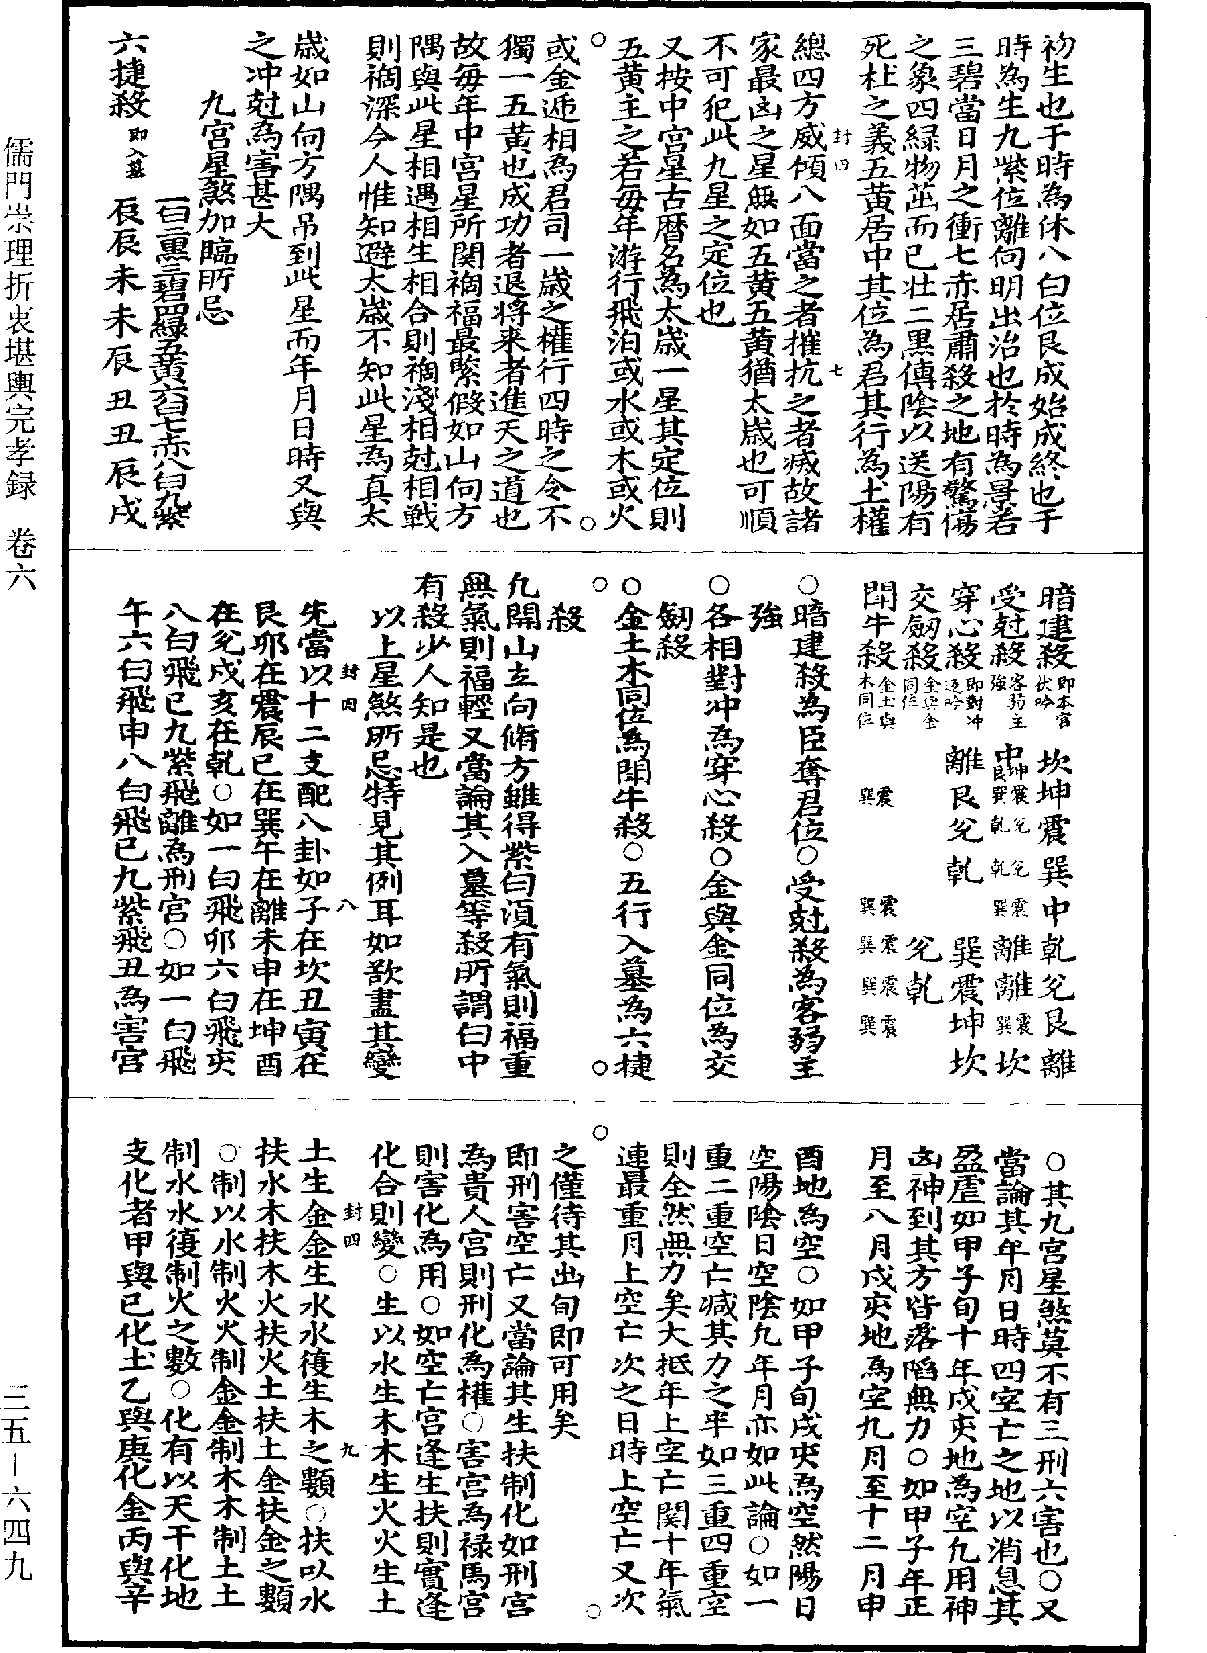 初生也于時為休八白位艮成始成終也于
時為生九紫位離向明出治也於時為景若
三碧當日月之衝七赤居肅殺之地有驚傷
之象四緑物茁而已壮二黒傳陰以送陽有
死杜之義五黄居中其位為君其行為土權
封四
七
總四方威傾八面當之者摧抗之者㓕故諸
家最凶之星無如五黄五黄猶太歲也可順
不可犯此九星之定位也
又按中宫星古暦名為太歲一星其定位則
五黄主之若毎年游行飛泊或水或木或火
或金逓相為君司一歲之權行四時之令不
獨一五黄也成功者退将来者進天之道也
故毎年中宫星所関禍福最緊假如山向方
隅與此星相遇相生相合則禍淺相尅相戰
則禍深今人惟知避太歲不知此星為真太
歲如山向方隅吊到此星而年月日時又與
之冲尅為害甚大
九宫星煞加臨所忌
一白二黒三碧四緑五黄六白七赤八白九紫
六捷殺 即入墓 辰辰未未辰丑丑辰戌
暗建殺 即本宫伏吟 坎坤震巽中乾兌艮離
受尅殺 客弱主強 中 坤艮 震巽 兌乾 兌乾 震巽 離 離 震巽 坎
穿心殺 即對冲返吟 離艮兌乾 巽震坤坎
交劒殺 金與金同位 兌乾
鬪牛殺 金土與木同位 震巽 震巽 震巽 震巽 震巽
○暗建殺為臣奪君位○受尅殺為客弱主
強
○各相對冲為穿心殺○金與金同位為交
劒殺
○金土木同位為鬪牛殺○五行入墓為六捷
殺
凢開山立向脩方雖得紫白湏有氣則福重
無氣則福輕又當論其入墓等殺所謂白中
有殺少人知是也
以上星煞所忌特見其例耳如歆盡其變
封四
八
先當以十二支配八卦如子在坎丑寅在
艮夘在震辰巳在巽午在離未申在坤酉
在兌戌亥在乾○如一白飛夘六白飛亥
八白飛巳九紫飛離為刑宫○如一白飛
午六白飛申八白飛巳九紫飛丑為害宫
○其九宫星煞莫不有三刑六害也○又
當論其年月日時四空亡之地以消息其
盈虗如甲子旬十年戌亥地為空凢用神
凶神到其方皆落䧟無力○如甲子年正
月至八月戌亥地為空九月至十二月申
酉地為空○如甲子旬戌亥為空然陽日
空陽陰日空陰凢年月亦如此論○如一
重二重空亡减其力之半如三重四重空
則全然無力矣大抵年上空亡関十年氣
連最重月上空亡次之日時上空亡又次
之僅待其出旬即可用矣
即刑害空亡又當論其生扶制化如刑宫
為貴人宫則刑化為權○害宫為禄馬宫
則害化為用○如空亡宫逢生扶則實逢
化合則變○生以水生木木生火火生土
封四
九
土生金金生水水復生木之類○扶以水
扶水木扶木火扶火土扶土金扶金之類
○制以水制火火制金金制木木制土土
制水水復制火之數○化有以天干化地
支化者甲與己化土乙與庚化金丙與辛
儒門崇理折衷堪輿完孝録 卷六
三五－六四九